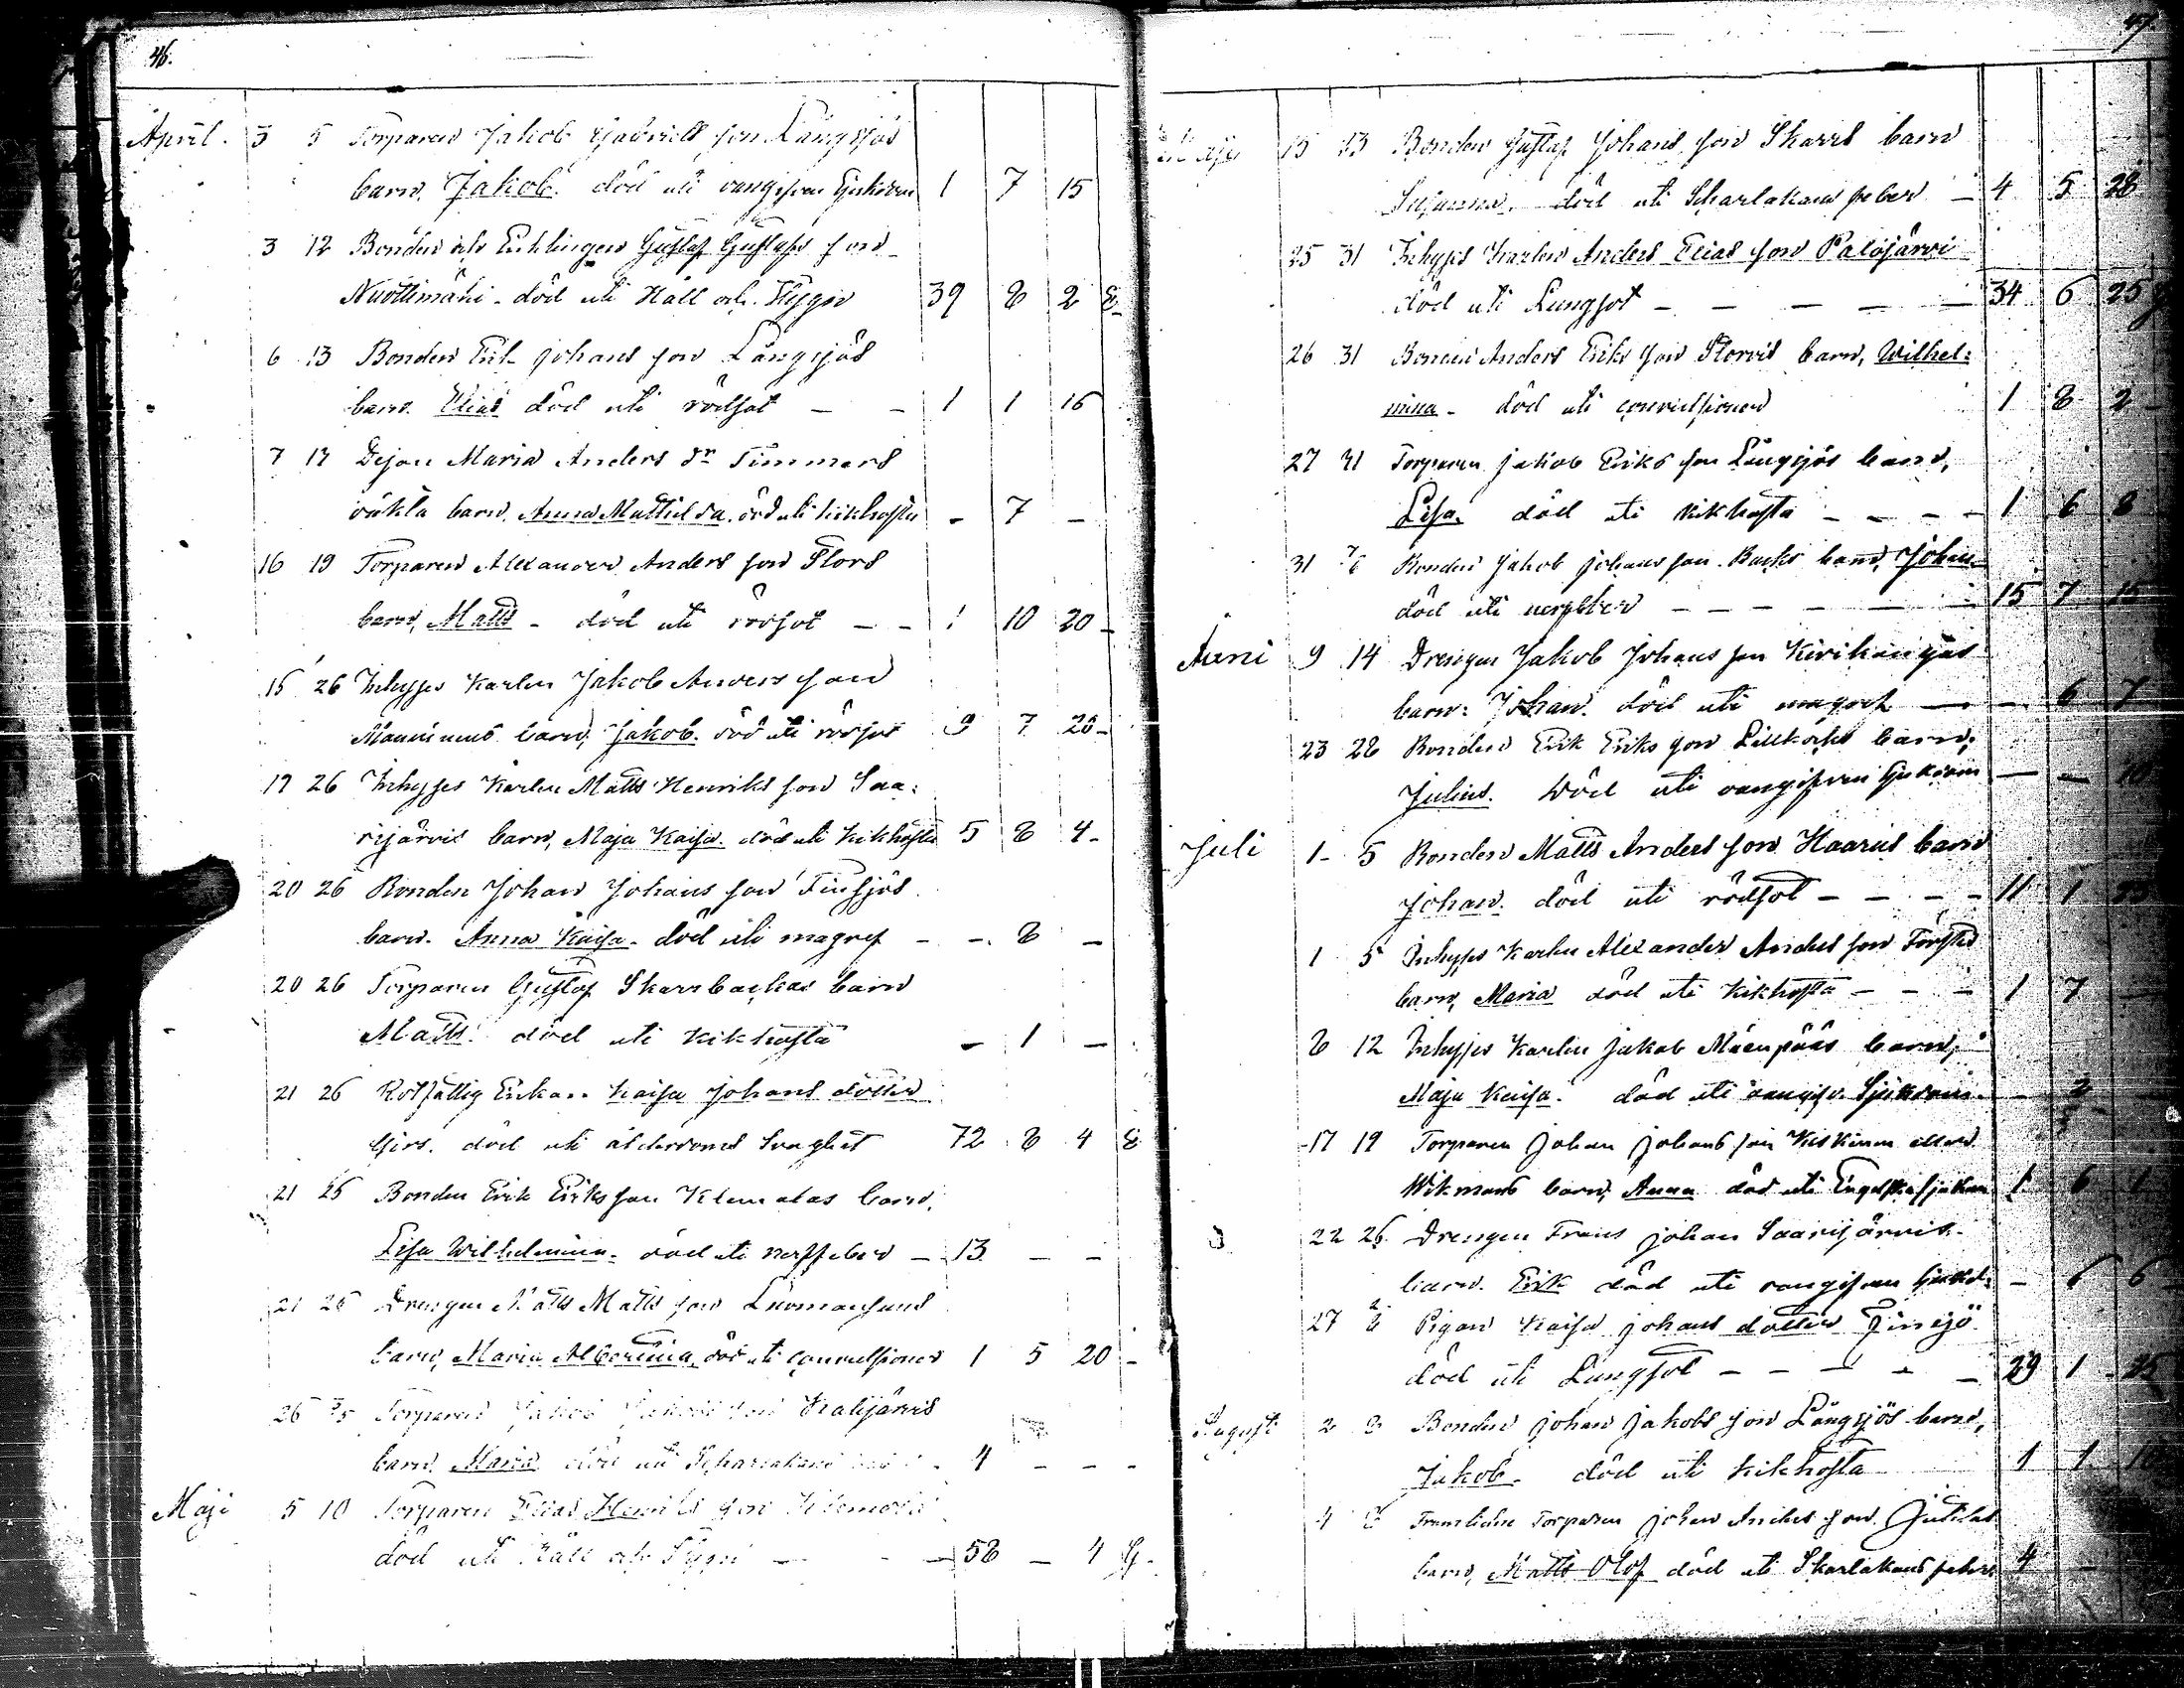 46.
April. 3 5 Torparen Jakob Gabriels son Långsjös
barn, Jakob. död uti oangifven sjukdom 1 7 15
3 12 Bonden och Enklingen Gustaf Gustafs son
Nuottimäki - död uti Håll och Stygn 39 8 2 E.
6 13 Bonden Erik Johans son Långsjös
barn. Elias död uti rödsot - - 1 1 16
7 17 Dejan Maria Anders dr Timmers
oäkta barn. Anna Mathilda. död uti kikhosta - 7 -
16 19 Torparen Alexander Anders son Stors
barn, Matts - död uti rödsot - - 1 10 20 -
15 26 Inhyses Karlen Jakob Anders son
barn, Jakob. död uti rödsot 9 7 20 -
19 26 Inhyses Karlen Matts Henriks son Saa:
rijärvis barn, Maja Kaisa. död uti kikhosta 5 8 4 -
20 26 Bonden Johan Johans son Finsjös
barn. Anna Kaisa - död uti magref - - 8 -
20 26 Torparen Gustaf Skarrbackas barn
Matts. död uti kikhosta - 1 -
21 26 Rotfattig Enkan Kaisa Johans dotter
död uti ålderdoms svaghet 72 8 4 E
21 26 Bonden Erik Eriks son Klemolas barn,
Lisa Wilhelmina - död uti nerffeber - 13 - -
21 26 Drengen Matts Matts son
barn, Maria Albertina, död uti convulsioner 1 5 20 -
26 3/5 Torparen Jakob Jakobs son Kalijärvis
barn, Maria död uti Scharlakans 4 - - -
Maji 5 10 Torparen Elias Henriks son Klemola
död uti Håll och Stygn - - 58 - 4 G.
47.
Maji 15 23 Bonden Gustaf Johans son Skarrs barn
Susanna. död uti Scharlakans feber - 4 5 28
25 31 Inhyses Karlen Anders Elias son Palojärvi
död uti Lungsot - - - - - 34 6 25 G
26 31 Bonden Anders Eriks son Storvis barn, Wilhel:
mina - död uti convulsioner 1 8 2 -
27 31 Torparen Jakob Eriks son Långsjös barn,
Lisa. död uti kikhosta - - - - 1 6 8
31 7/6 Bonden Jakob Johans son Backs barn, Johan
död uti nerffeber - - - - - - 15 7 15
Juni 9 14 Drengen Jakob Johans son Kirikangas
barn: Johan. död uti magref - - 6 7
23 28 Bonden Erik Eriks son Lillkäcks barn,
Julius. död uti oangifven sjukdom - - 10
Juli 1 - 5 Bonden Matts Anders son Kaarus barn
Johan. död uti rödsot - - - - 11 1 23
1 5 Inhyses Karlen Alexander Anders son Förstis
barn, Maria död uti kikhosta - - - 1 7 -
8 12 Inhyses Karlen Jakob Mäenpääs barn,
Maja Kaisa. död uti oangifv. Sjukdom - 2
17 19 Torparen Johan Johans son Kiskinen eller
Wikmans barn, Anna död uti Engelska sjukan 1 6 1
22 26 Drengen Frans Johan Saarijärvis
barn. Erik död uti oangifven sjukd: - 6 6
27 2/8 Pigan Kaisa Johans dotter Finsjö
död uti Lungsot - - - - - 29 1 25
Augusti 2 Bonden Johan Jakobs son Långsjös barn,
Jakob. död uti kikhosta 1 1 10
4 Framlidne Torparen Johan Anders son Jutilas
barn, Matts Olof död uti Skarlakans feber 4